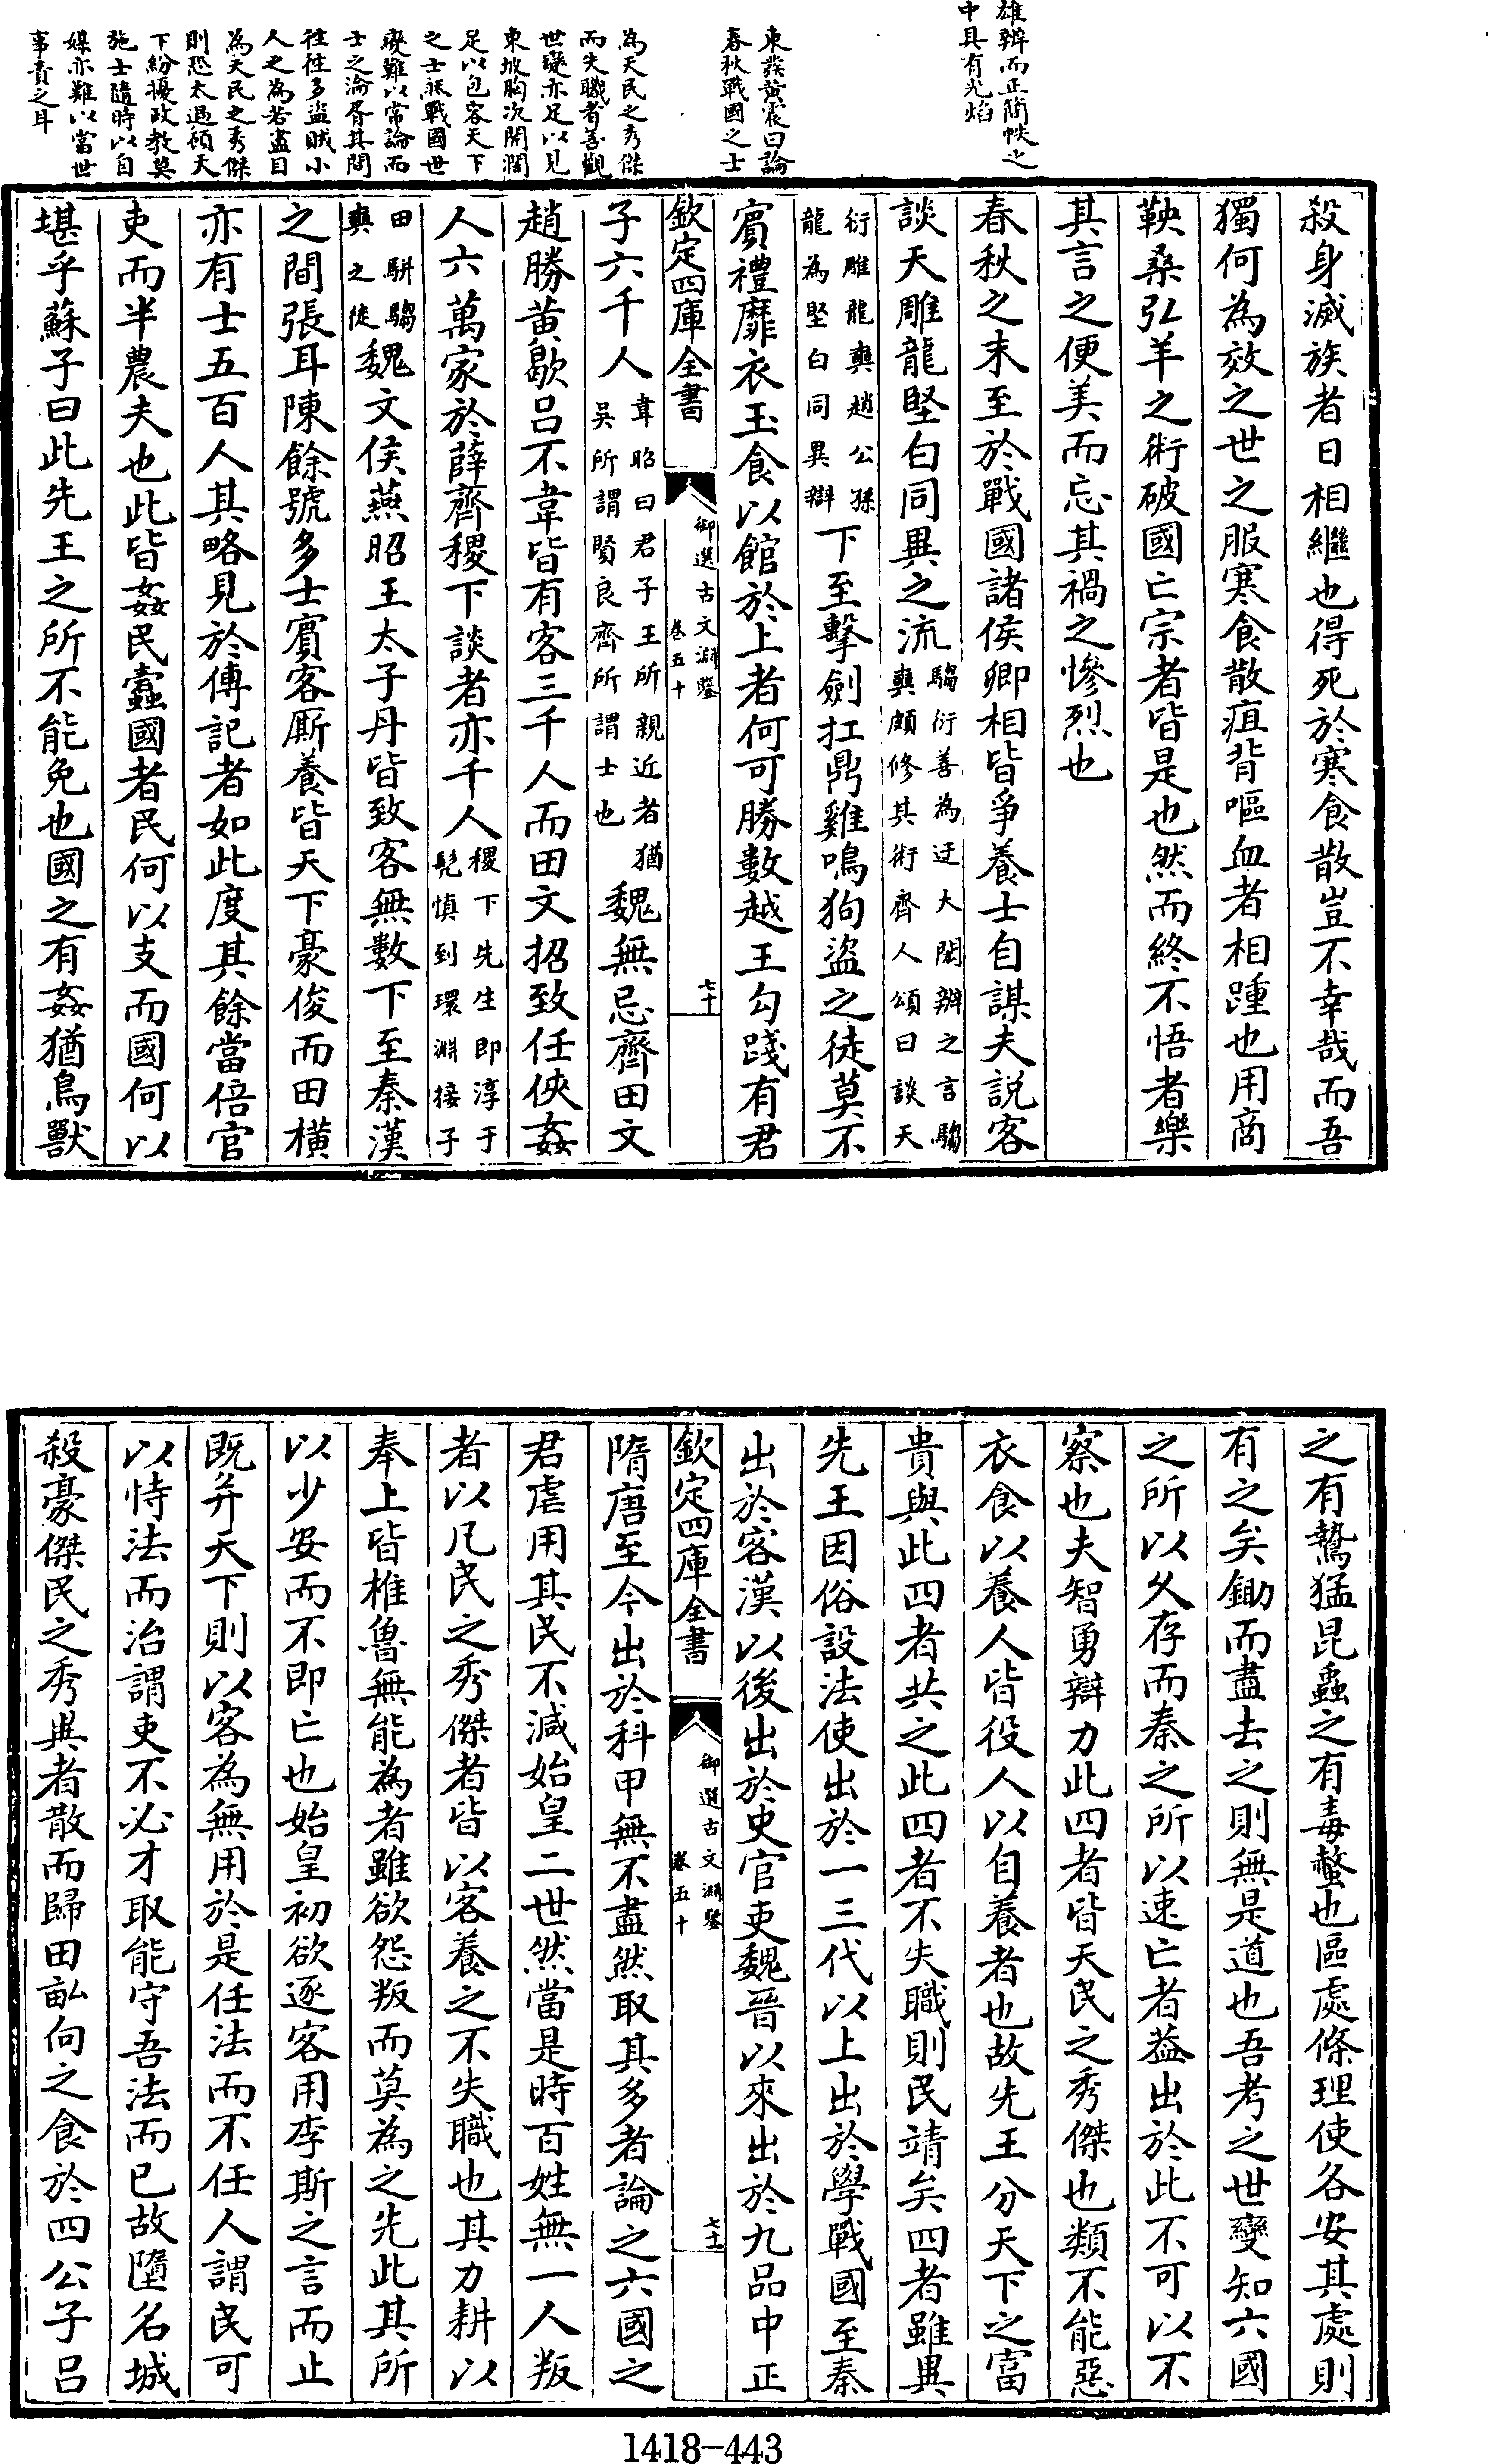 雄辨而正簡帙之
中具有光焰
東發黃震曰論
春秋戰國之士
為天民之秀傑
而失職者善觀
世變亦足以見
東坡胸次開濶
足以包容天下
之士然戰國世
變難以常論而
士之淪胥其間
往往多盜賊小
人之為若盡目
為天民之秀傑
則恐太過頋天
下紛擾政教莫
施士隨時以自
媒亦難以當世
事責之耳
殺身滅族者日相繼也得死於寒食散豈不幸哉而吾
獨何為效之世之服寒食散疽背嘔血者相踵也用商
鞅桑弘羊之術破國亡宗者皆是也然而終不悟者樂
其言之便美而忘其禍之慘烈也
春秋之末至於戰國諸侯卿相皆爭養士自謀夫説客
談天雕龍堅白同異之流
騶衍善為迂大閎辨之言騶
奭頗修其術齊人頌曰談天
衍雕龍奭趙公孫
龍為堅白同異辯
下至擊劍扛鼎雞鳴狗盜之徒莫不
賓禮靡衣玉食以館於上者何可勝數越王勾踐有君
欽定四庫全書
御選古文淵鑒
卷五十
七十
子六千人
韋昭曰君子王所親近者猶
吳所謂賢良齊所謂士也
魏無忌齊田文
趙勝黃歇呂不韋皆有客三千人而田文招致任俠姦
人六萬家於薛齊稷下談者亦千人
稷下先生即淳于
髡慎到環淵接子
田駢騶
奭之徒
魏文侯燕昭王太子丹皆致客無數下至秦漢
之間張耳陳餘號多士賓客厮養皆天下豪俊而田橫
亦有士五百人其略見於傳記者如此度其餘當倍官
吏而半農夫也此皆姦民蠹國者民何以支而國何以
堪乎蘇子曰此先王之所不能免也國之有姦猶鳥獸
之有鷙猛昆蟲之有毒螫也區處條理使各安其處則
有之矣鋤而盡去之則無是道也吾考之世變知六國
之所以久存而秦之所以速亡者葢出於此不可以不
察也夫智勇辯力此四者皆天民之秀傑也類不能惡
衣食以養人皆役人以自養者也故先王分天下之富
貴與此四者共之此四者不失職則民靖矣四者雖異
先王因俗設法使出於一三代以上出於學戰國至秦
出於客漢以後出於吏官吏魏晉以來出於九品中正
欽定四庫全書
御選古文淵鑒
卷五十
七十一
隋唐至今出於科甲無不盡然取其多者論之六國之
君虐用其民不減始皇二世然當是時百姓無一人叛
者以凡民之秀傑者皆以客養之不失職也其力耕以
奉上皆椎魯無能為者雖欲怨叛而莫為之先此其所
以少安而不即亡也始皇初欲逐客用李斯之言而止
既并天下則以客為無用於是任法而不任人謂民可
以恃法而治謂吏不必才取能守吾法而已故墮名城
殺豪傑民之秀異者散而歸田畝向之食於四公子呂
1418-443